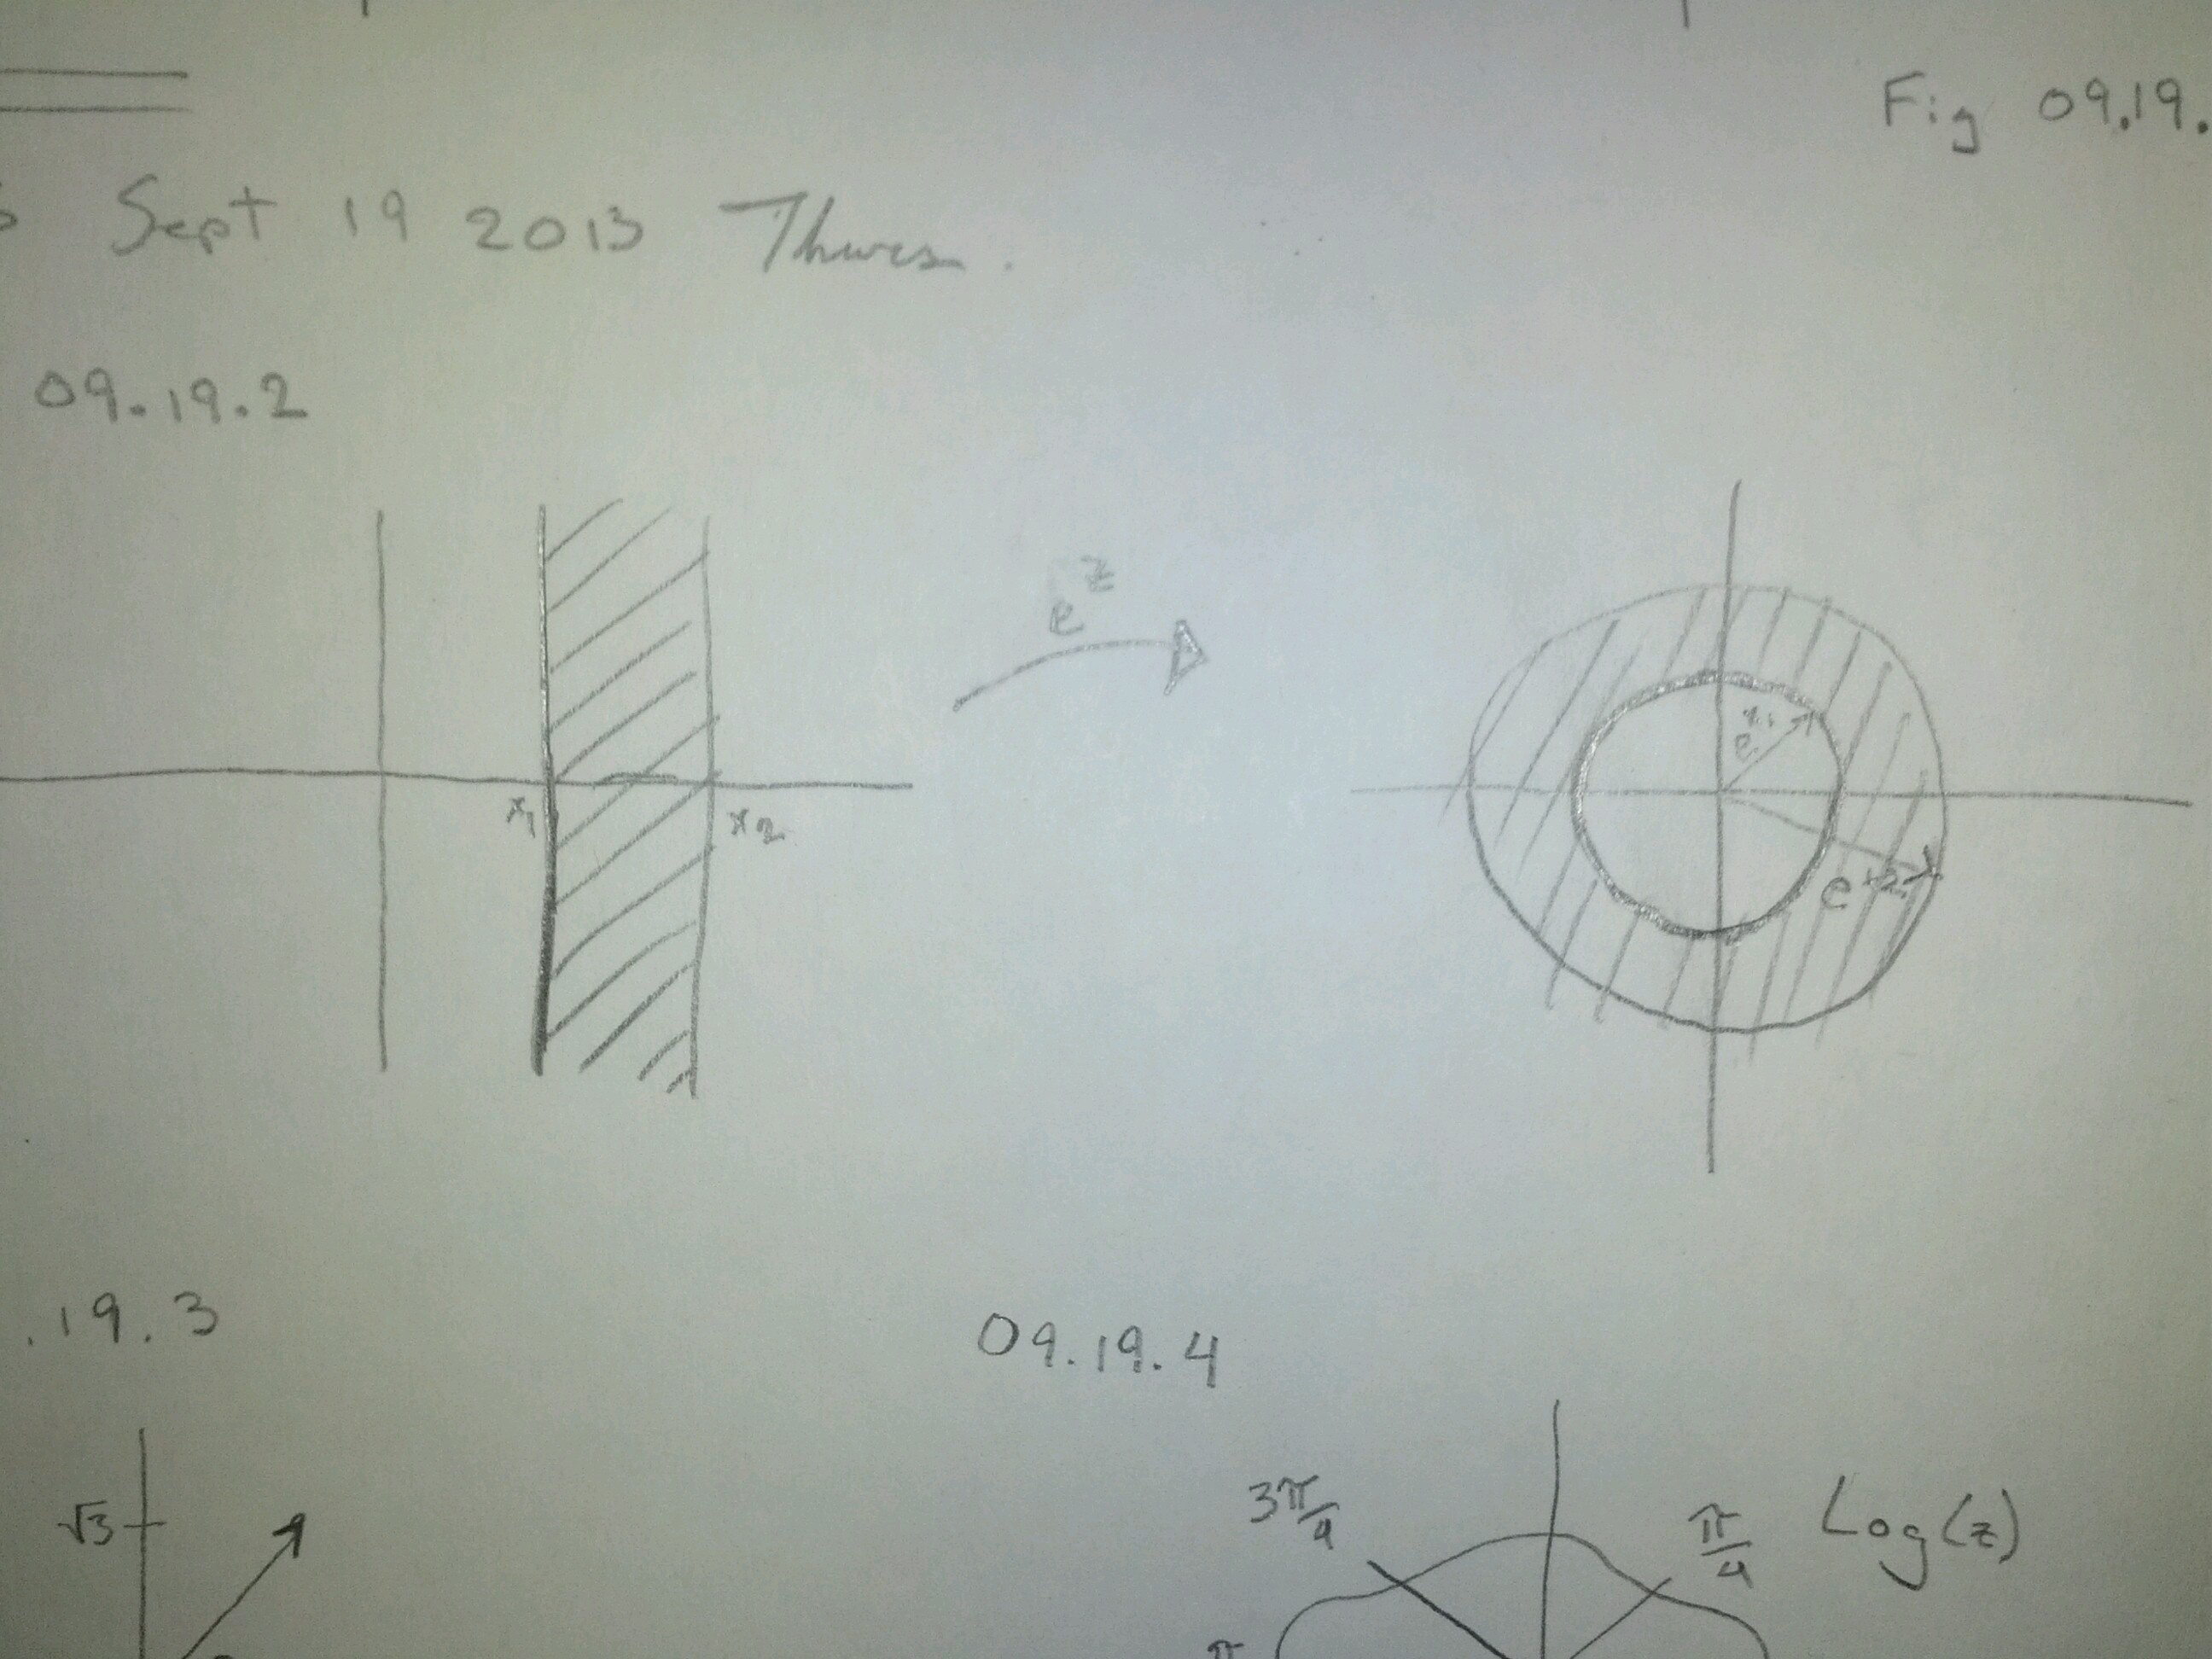 Fig 09.19.
Sept 19 2013 Thurs.
09.19.2
e^z
x₁
x₂
e^x₁
e^x₂
.19.3
09.19.4
√3
3π/4
π/4
Log(z)
π